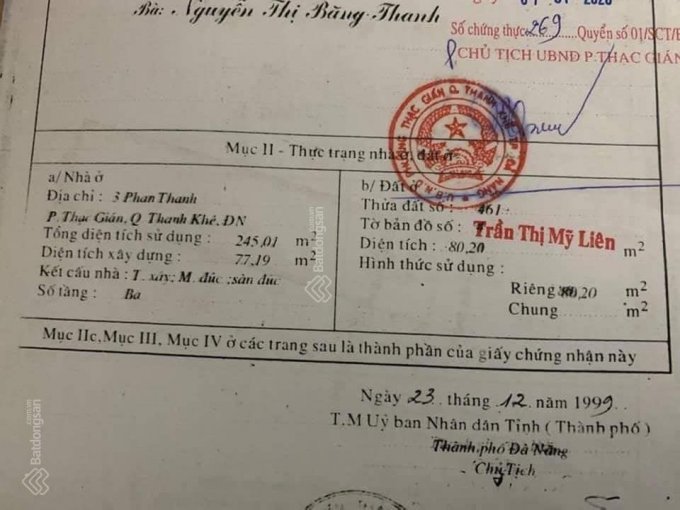 Bà: Nguyễn Thị Băng Thanh
Số chứng thực 269 Quyển số 01/SCT/
CHỦ TỊCH UBND P.THẠC GIÁN
U.B.N.D PHƯỜNG THẠC GIÁN Q. THANH KHÊ
Mục II - Thực trạng nhà ở, đất ở
a/ Nhà ở
Địa chỉ : 3 Phan Thanh
P. Thạc Gián, Q Thanh Khê, ĐN
Tổng diện tích sử dụng : 245,01 m2
Diện tích xây dựng : 77,19 m2
Kết cấu nhà : T. xây; M. đúc ;sàn đúc
Số tầng : Ba
b/ Đất ở
Thửa đất số : 461
Tờ bản đồ số :
Trần Thị Mỹ Liên
Diện tích : 80,20 m2
Hình thức sử dụng :
Riêng 80,20 m2
Chung m2
Mục IIc, Mục III, Mục IV ở các trang sau là thành phần của giấy chứng nhận này
Ngày 23 tháng 12 năm 1999
T.M Uỷ ban Nhân dân Tỉnh ( Thành phố )
Thành phố Đà Nẵng
Chủ Tịch
Batdongsan
Batdongsan
Batdongsan
.com.vn